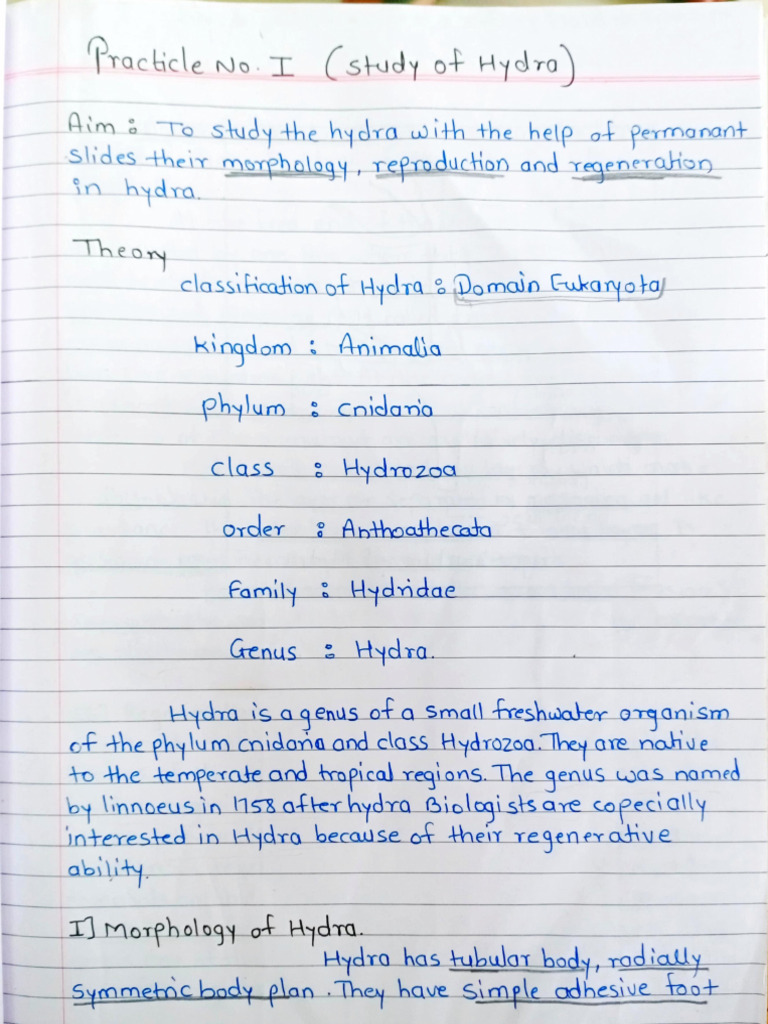 Practicle No. I (Study of Hydra)
Aim : To study the hydra with the help of permanant
slides their morphology, reproduction and regeneration
in hydra.
Theory
classification of Hydra : Domain Eukaryota
kingdom : Animalia
phylum : cnidaria
class : Hydrozoa
order : Anthoathecata
family : Hydridae
Genus : Hydra.
Hydra is a genus of a small freshwater organism
of the phylum cnidaria and class Hydrozoa. They are native
to the temperate and tropical regions. The genus was named
by linnoeus in 1758 after hydra Biologists are copecially
interested in Hydra because of their regenerative
ability.
I] Morphology of Hydra.
Hydra has tubular body, radially
symmetric body plan. They have simple adhesive foot